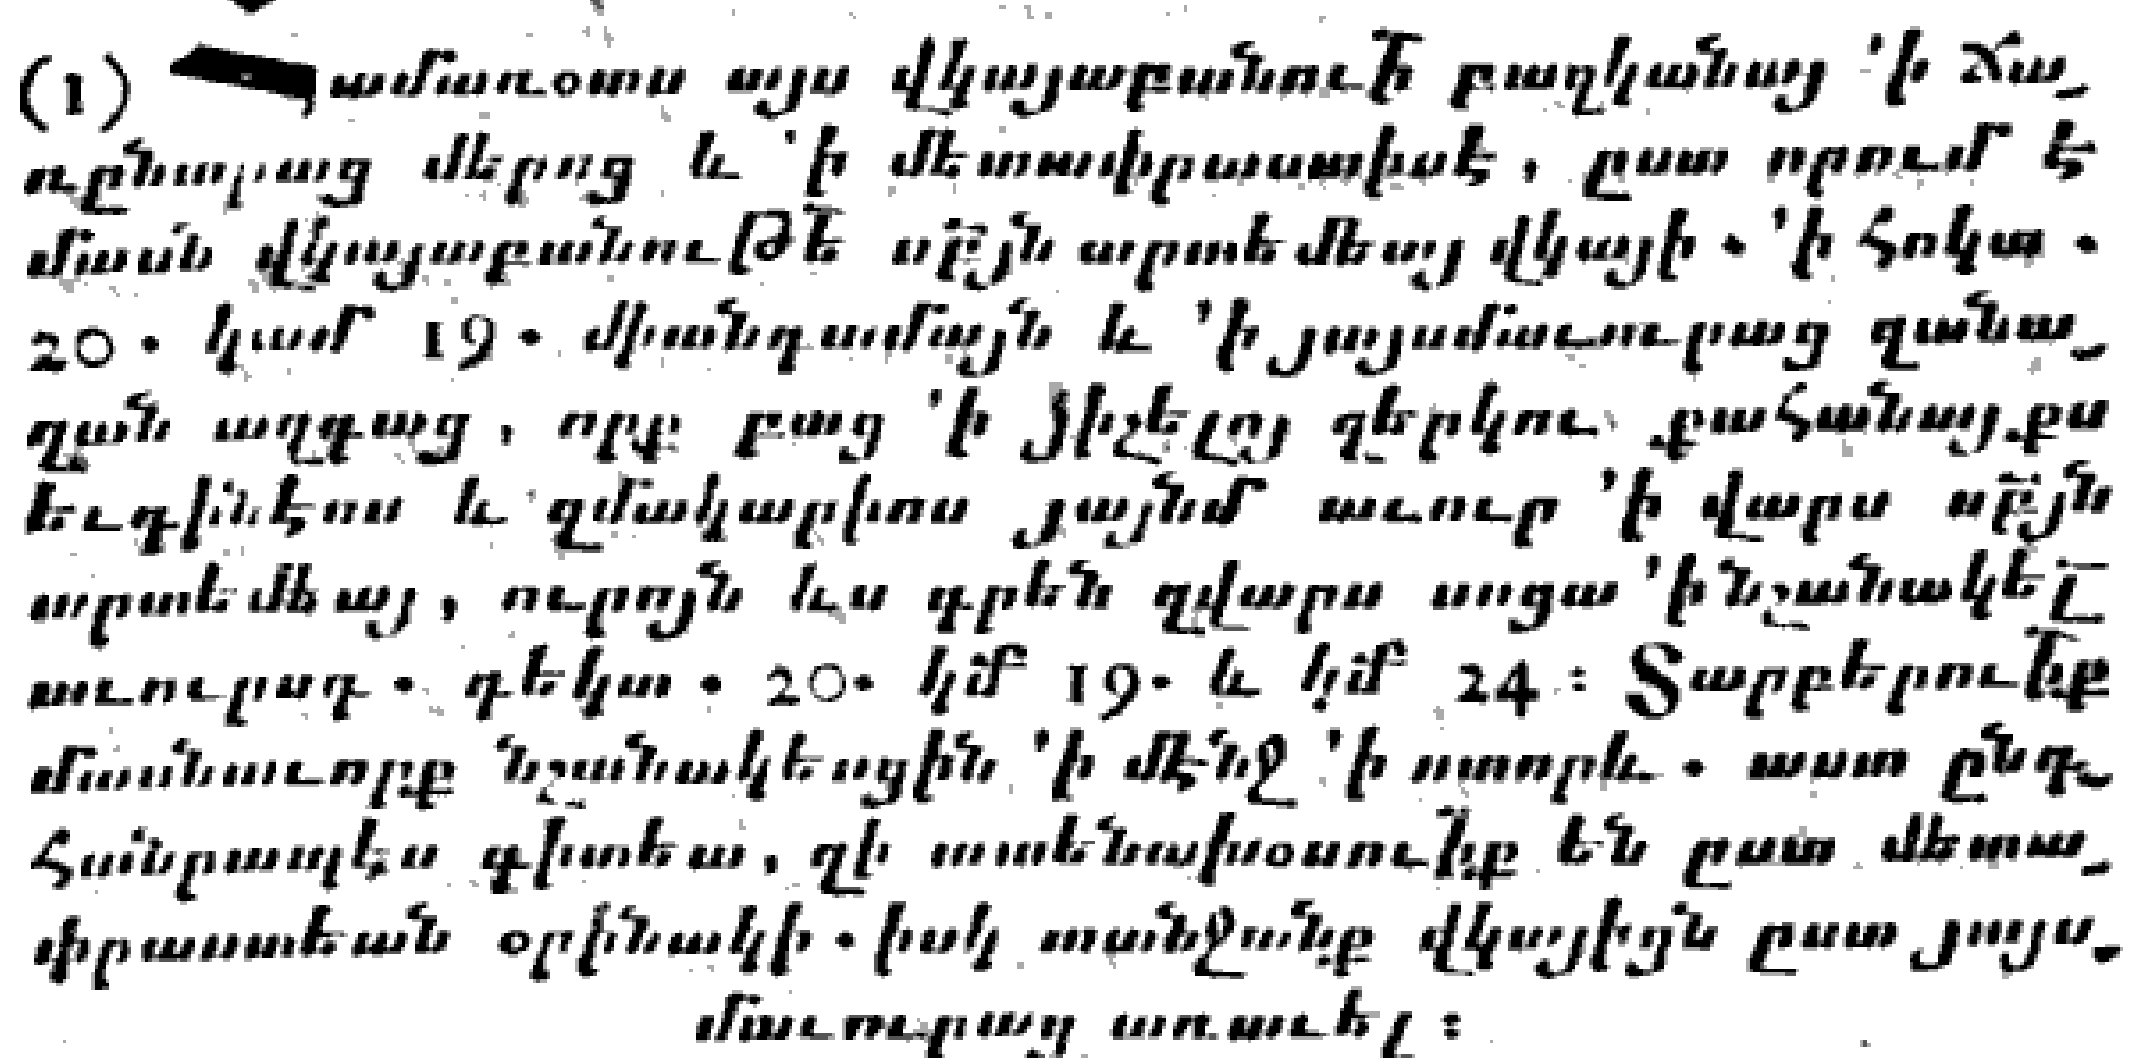 (1) Համառօտս այս վկայաբանուի բաղկանայ 'ի Ճա֊
ռընտրաց մերոց և 'ի մետաափրաստիսէ, ըստ որում է
մասն վկայաբանուլթե սրբյն արտեմեայ վկայի. 'ի Հոկտ.
20. կամ 19. միանգամայն և 'ի յայսմաւուրաց զանա֊
զան ազգաց, որք բաց 'ի յիշելոյ զերկու քահանայքս
եւգինէոս և զմակարիոս յայնմ աւուր 'ի վարս սրբյն
արտեմեայ, ուրոյն ևս գրեն զվարս սոցա 'ի նշանակել
աւուրսդ. դեկտ. 20. կմ 19. և կմ 24: Տարբերուիք
մասնաւորք նշանակեսցին 'ի մէնջ 'ի ստորև. աստ ընդ֊
հանրապէս գիտեա, զի ատենախօսուիք են ըստ մետա֊
փրաստեան օրինակի. իսկ տանջանք վկայիցն ըստ յայս֊
մաւուրաց առաւել: